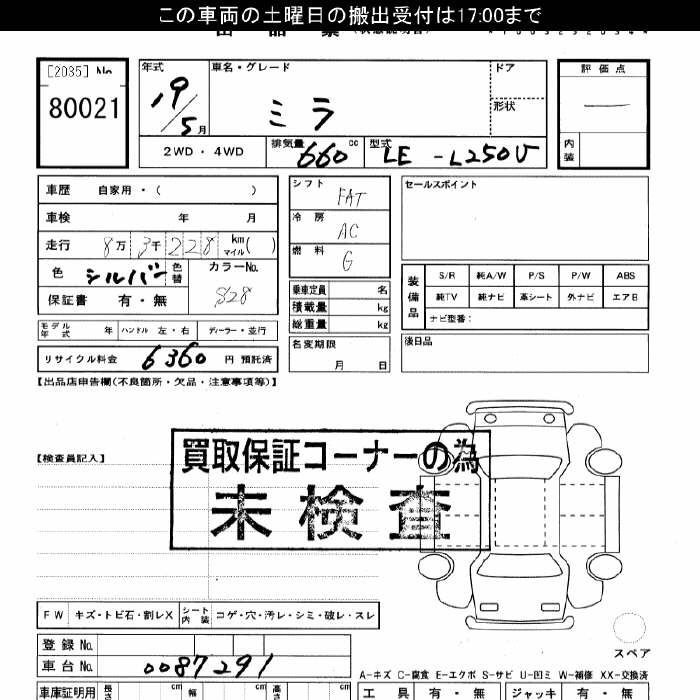 この車両の土曜日の搬出受付は17:00まで
[2035] No
80021
年式
19/5月
車名・グレード
ミラ
ドア
形状
評価点
内装
2WD・4WD
排気量 660 cc
型式 LE-L250V
車歴 自家用・( )
車検 年 月
走行 8万 3千 228 km マイル( )
色 シルバー 色替 カラーNo.
保証書 有・無 S28
モデル年式 年 ハンドル 左・右 ディーラー・並行
リサイクル料金 6360 円 預託済
シフト FAT
冷房 AC
燃料 G
乗車定員 名
積載量 kg
総重量 kg
名変期限
月 日
セールスポイント
装備品
S/R 純A/W P/S P/W ABS
純TV 純ナビ 革シート 外ナビ エアB
ナビ型番:
後日品
【出品店申告欄(不良箇所・欠品・注意事項等)】
【検査員記入】
買取保証コーナーの為
未検査
FW キズ・トビ石・割レX シート内装 コゲ・穴・汚レ・シミ・破レ・スレ
登録No.
車台No. 0087291
スペア
A-キズ C-腐食 E-エクボ S-サビ U-凹ミ W-補修 XX-交換済
車庫証明用 長さ cm 幅 cm 高さ cm
工具 有・無 ジャッキ 有・無